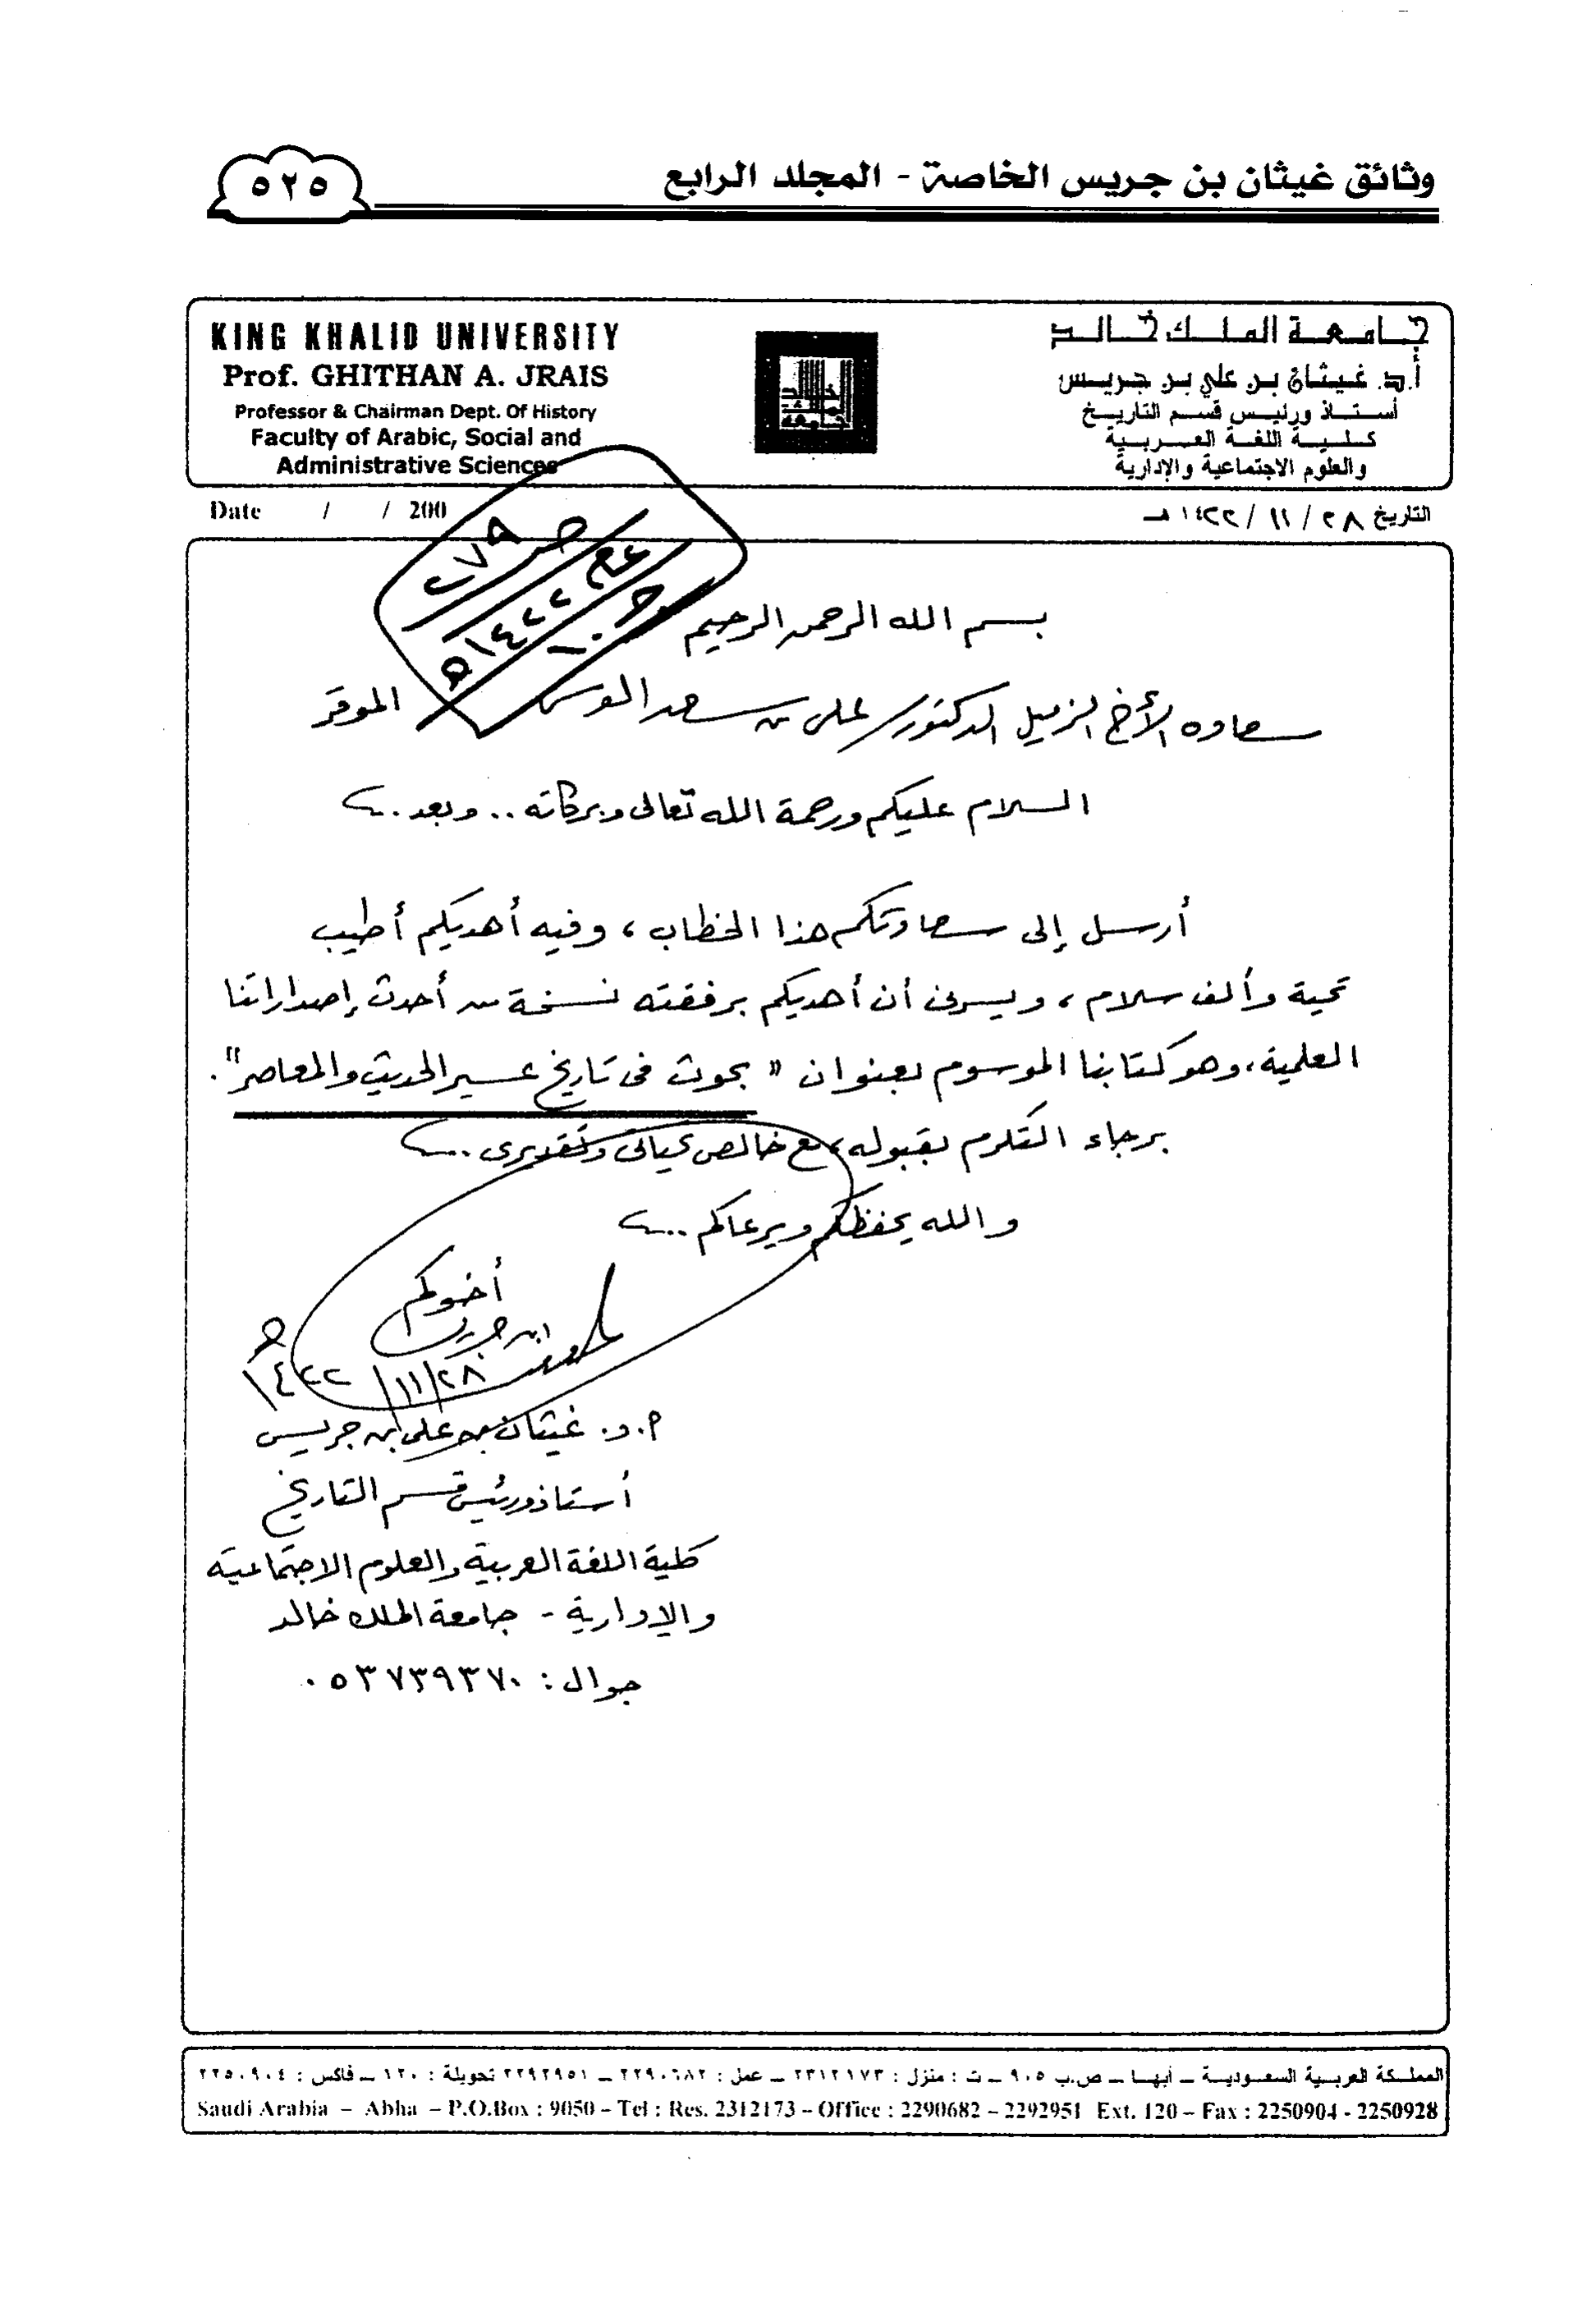 وثائق غيثان بن جريس الخاصة - المجلد الرابع
٥٢٥
KING KHALID UNIVERSITY
Prof. GHITHAN A. JRAIS
Professor & Chairman Dept. Of History
Faculty of Arabic, Social and
Administrative Sciences
جامعة الملك خالد
أ.د. غيثان بن علي بن جريس
أستاذ ورئيس قسم التاريخ
كلية اللغة العربية
والعلوم الاجتماعية والإدارية
Date / / 200
التاريخ ٢٨ / ١١ / ١٤٢٢ هـ
عام
١٤٢٢هـ
بسم الله الرحمن الرحيم
سعادة الأخ الزميل الدكتور / علي بن سعد الموسى الموقر
السلام عليكم ورحمة الله تعالى وبركاته .. وبعد ..
أرسل إلى سعادتكم هذا الخطاب ، وفيه أهديكم أطيب
تحية وألف سلام ، ويسرني أن أهديكم برفقته نسخة من أحدث إصداراتنا
العلمية ، وهو كتابنا الموسوم بعنوان " بحوث في تاريخ عسير الحديث والمعاصر" .
برجاء التكرم بقبوله ، مع خالص تحياتي وتقديري ..
والله يحفظكم ويرعاكم ..
أخوكم
ابن جريس
٢٨ / ١١ / ١٤٢٢هـ
أ. د. غيثان بن علي بن جريس
أستاذ ورئيس قسم التاريخ
كلية اللغة العربية والعلوم الاجتماعية
والإدارية - جامعة الملك خالد
جوال : ٠٥٣٧٣٩٣٧٠
المملكة العربية السعودية – أبها – ص.ب ٩٠٥ – ت : منزل : ٢٣١٢١٧٣ – عمل : ٢٢٩٠٦٨٢ – ٢٢٩٢٩٥١ تحويلة : ١٢٠ – فاكس : ٢٢٥٠٩٠٤
Saudi Arabia – Abha – P.O.Box : 9050 – Tel : Res. 2312173 – Office : 2290682 – 2292951 Ext. 120 – Fax : 2250904 - 2250928